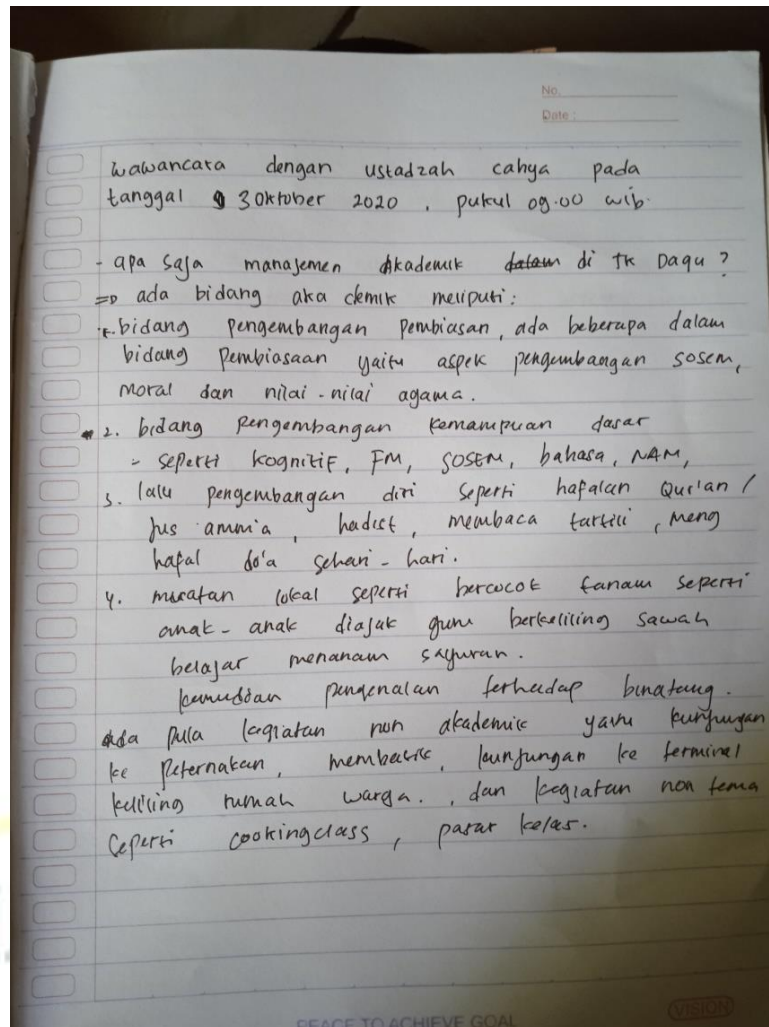 No.
Date :
wawancara dengan ustadzah cahya pada
tanggal 3 Oktober 2020 , pukul 09.00 wib.
- apa saja manajemen Akademik dalam di TK Daqu ?
=> ada bidang aka demik meliputi :
1. bidang pengembangan pembiasan, ada beberapa dalam
bidang pembiasaan yaitu aspek pengembangan sosem,
moral dan nilai - nilai agama.
2. bidang pengembangan kemampuan dasar
- seperti kognitif, FM, SOSEM, bahasa, NAM,
3. lalu pengembangan diri seperti hafalan Qur'an /
Jus 'amm'a , hadist, membaca tartili , meng
hafal do'a sehari - hari.
4. muatan lokal seperti bercocok tanam seperti
anak - anak diajak guru berkeliling sawah
belajar menanam sayuran.
kemuddian pengenalan terhadap binatang.
Ada pula kegiatan non akademik yaitu kunjungan
ke peternakan, membatik, kunjungan ke terminal
keliling rumah warga. , dan kegiatan non tema
seperti cookingclass , pasar kelas.
PEACE TO ACHIEVE GOAL
VISION